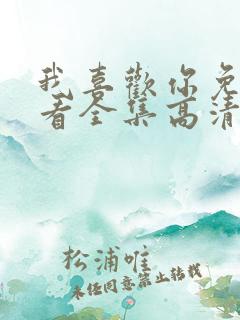 我喜歡你免
看全集高清
松浦唯
未任同意禁止转载